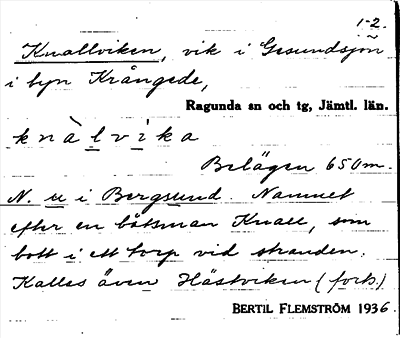 1-2.
Knallviken, vik i Gesundsjön
i byn Krångede,
Ragunda sn och tg, Jämtl. län.
knàlvika
Belägen 650m.
N. u i Bergsund. Namnet
efter en båtsman Knall, som
bott i ett torp vid stranden.
Kallas även Hästviken (forts.)
BERTIL FLEMSTRÖM 1936.